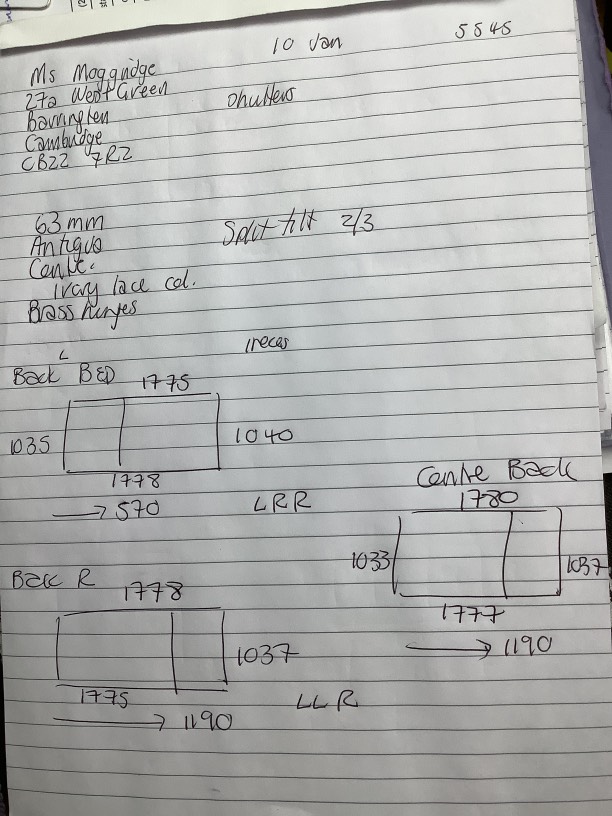 10 Jan
5545
Ms Moggridge
27a West Green
Barrington
Cambridge
CB22 7RZ
Shutters
63 mm
Antigua
Split tilt 2/3
Ivory lace col.
Brass hinges
1 recess
L
Back BED
1775
1035
1040
1778
→ 570
LRR
Centre Back
1780
1033
1037
1777
→ 1190
Back R
1778
1037
1775
→ 1190
LLR